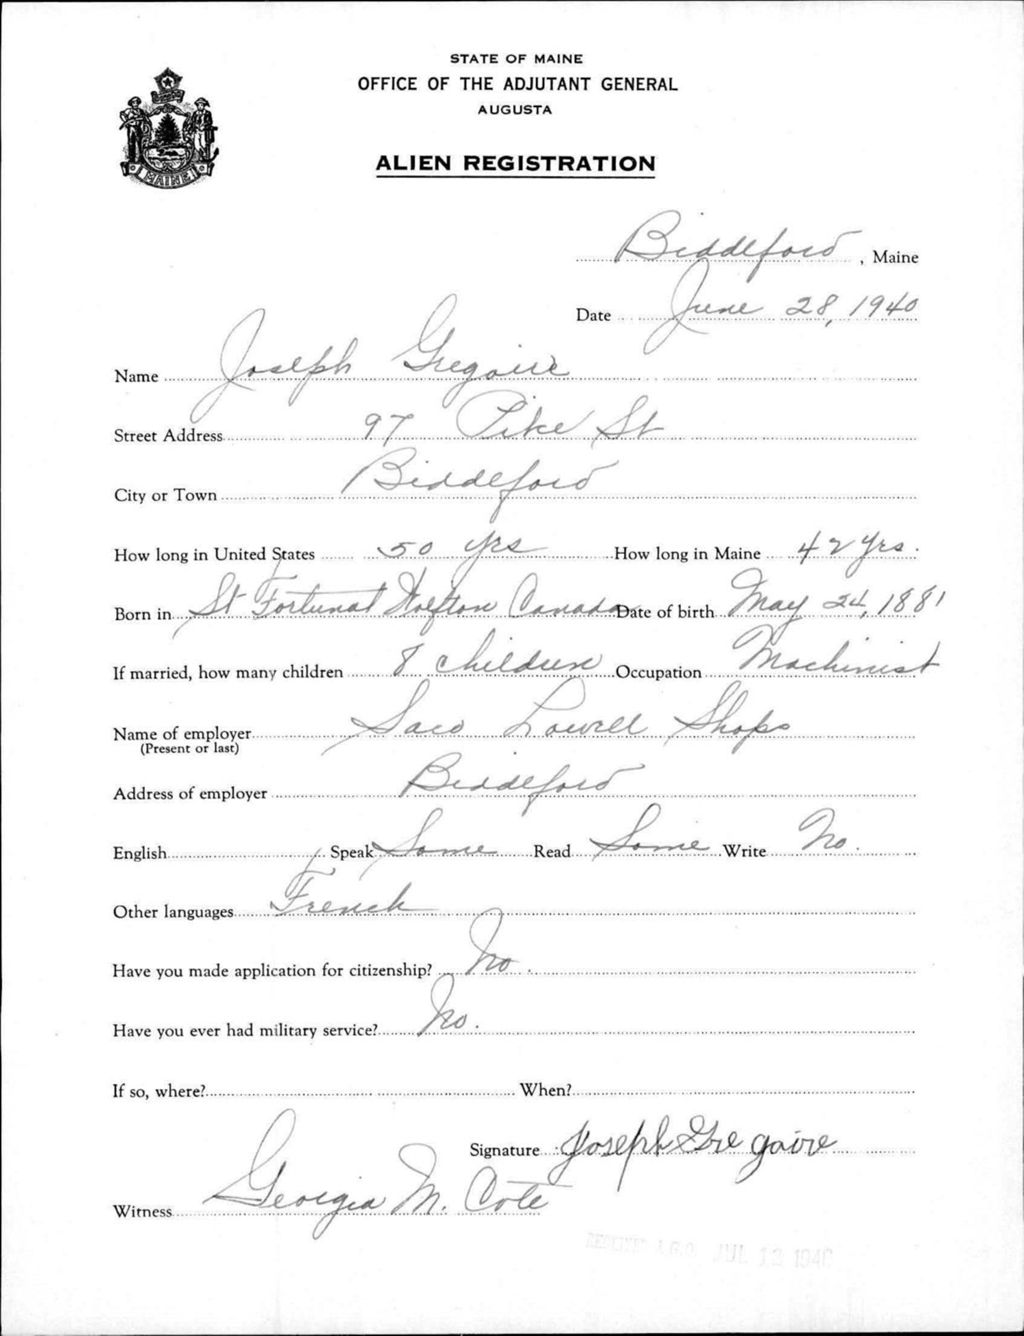 STATE OF MAINE
OFFICE OF THE ADJUTANT GENERAL
AUGUSTA
ALIEN REGISTRATION
MAINE
Biddeford, Maine
Date June 28, 1940
Name Joseph Gregoire
Street Address 97 Pike St
City or Town Biddeford
How long in United States 50 yrs How long in Maine 42 yrs.
Born in St Fortunat Canada Date of birth May 24, 1881
If married, how many children 8 children Occupation Machinist
Name of employer Saco Lowell Shops
(Present or last)
Address of employer Biddeford
English Speak Some Read Some Write No.
Other languages French
Have you made application for citizenship? No.
Have you ever had military service? No.
If so, where? When?
Signature Joseph Gregoire
Witness Georgia M. Cote
RECEIVED A.G.O. JUL 13 1940